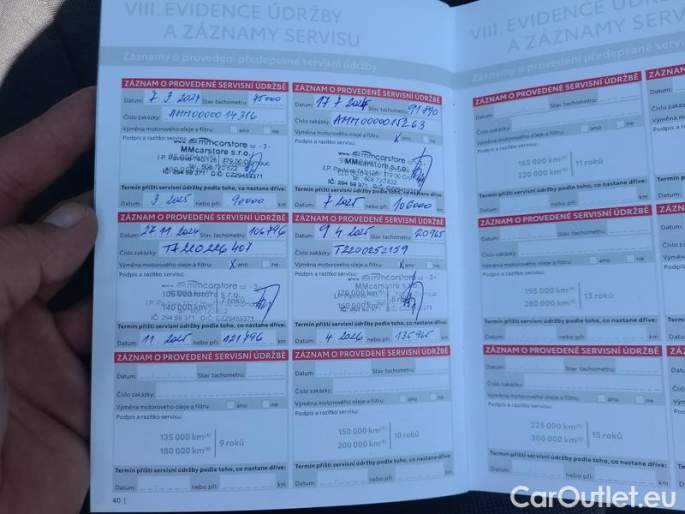 VIII. EVIDENCE ÚDRŽBY
A ZÁZNAMY SERVISU
Záznamy o provedení předepsané servisní údržby
ZÁZNAM O PROVEDENÉ SERVISNÍ ÚDRŽBĚ
Datum: 7 3 2024 Stav tachometru: 75000
Číslo zakázky: AMM00000 14716
Výměna motorového oleje a filtru: ano ne
Podpis a razítko servisu:
www.mmcarstore.cz - 3 -
MMcarstore s.r.o.
Termín příští servisní údržby podle toho, co nastane dříve:
3 2025 90000
ZÁZNAM O PROVEDENÉ SERVISNÍ ÚDRŽBĚ
Datum: 17 7 Stav tachometru:
Číslo zakázky: AMM00000 15263
Výměna motorového oleje a filtru: X ano ne
Podpis a razítko servisu:
MMcarstore s.r.o.
Termín příští servisní údržby podle toho, co nastane dříve:
7 2025 106000
ZÁZNAM O PROVEDENÉ SERVISNÍ ÚDRŽBĚ
27 11 2024 Stav tachometru: 106796
Číslo zakázky: TZ220226407
Výměna motorového oleje a filtru: X ano ne
Podpis a razítko servisu:
MMcarstore s.r.o.
Termín příští servisní údržby podle toho, co nastane dříve:
Datum: 11 2025 nebo při: 121796 km
ZÁZNAM O PROVEDENÉ SERVISNÍ ÚDRŽBĚ
Datum: 9 4 2025 Stav tachometru: 120965
Číslo zakázky: T2200252159
Výměna motorového oleje a filtru: X ano ne
Podpis a razítko servisu:
www.mmcarstore.cz - 3 -
MMcarstore s.r.o.
Termín příští servisní údržby podle toho, co nastane dříve:
Datum: 4 2026 nebo při: 135965 km
ZÁZNAM O PROVEDENÉ SERVISNÍ ÚDRŽBĚ
Datum: Stav tachometru: km
Číslo zakázky:
Výměna motorového oleje a filtru: ano ne
Podpis a razítko servisu:
135 000 km
180 000 km
9 roků
Termín příští servisní údržby podle toho, co nastane dříve:
Datum: nebo při: km
ZÁZNAM O PROVEDENÉ SERVISNÍ ÚDRŽBĚ
Datum: Stav tachometru: km
Číslo zakázky:
Výměna motorového oleje a filtru: ano ne
Podpis a razítko servisu:
150 000 km
200 000 km
10 roků
Termín příští servisní údržby podle toho, co nastane dříve:
Datum: nebo při: km
40 |
VIII. EVIDENCE ÚDR
A ZÁZNAMY SERV
ZÁZNAM O PROVEDENÉ SERVISNÍ ÚDRŽBĚ
Datum: Stav tachometru: km
Číslo zakázky:
Výměna motorového oleje a filtru: ano ne
Podpis a razítko servisu:
165 000 km
220 000 km
11 roků
Termín příští servisní údržby podle toho, co nastane dříve:
Datum: nebo při: km
ZÁZNAM O PROVEDENÉ SERVISNÍ ÚDRŽBĚ
Datum: Stav tachometru: km
Číslo zakázky:
Výměna motorového oleje a filtru: ano ne
Podpis a razítko servisu:
195 000 km
260 000 km
13 roků
Termín příští servisní údržby podle toho, co nastane dříve:
Datum: nebo při: km
ZÁZNAM O PROVEDENÉ SERVISNÍ ÚDRŽBĚ
Datum: Stav tachometru: km
Číslo zakázky:
Výměna motorového oleje a filtru: ano ne
Podpis a razítko servisu:
225 000 km
300 000 km
15 roků
Termín příští servisní údržby podle toho, co nastane dříve:
Datum: nebo při:
CarOutlet.eu